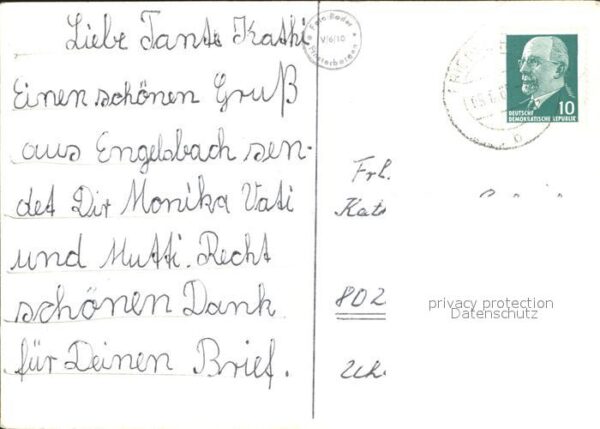 Liebe Tante Kathi
Einen schönen Gruß
aus Engelsbach sen-
det Dir Monika Vati
und Mutti. Recht
schönen Dank
für Deinen Brief.
Foto-Bader
V/6/10
Finsterbergen
10
DEUTSCHE
DEMOKRATISCHE REPUBLIK
Frl.
802
privacy protection
Datenschutz